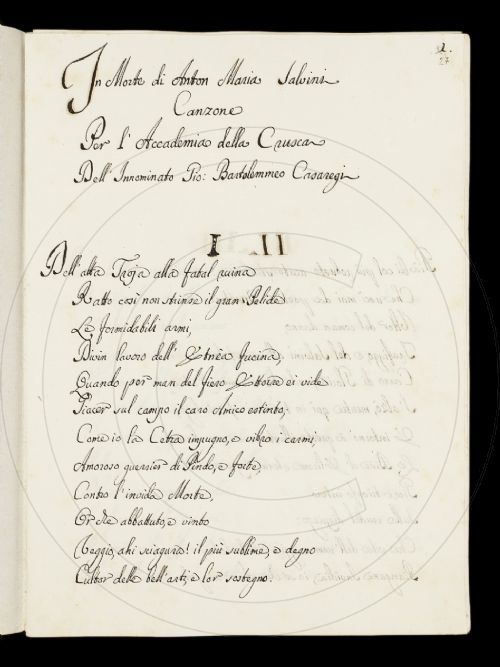 2.
27
In Morte di Anton Maria Salvini
Canzone
Per l'Accademia della Crusca
Dell'Innominato Gio: Bartolommeo Casaregi
I
Dell'alta Troja alla fatal ruina
Ratto così non strinse il gran Pelide
Le formidabili armi,
Divin lavoro dell'Etnèa fucina,
Quando per man del fiero Ettorre ei vide
Giacer sul campo il caro Amico estinto,
Come io la Cetra impugno, e vibro i carmi
Amoroso guerrier di Pindo, e forte,
Contro l'invida Morte,
Or che abbattuto, e vinto
Veggio, ahi sciagura! il più sublime, e degno
Cultor delle bell'arti, e lor sostegno.